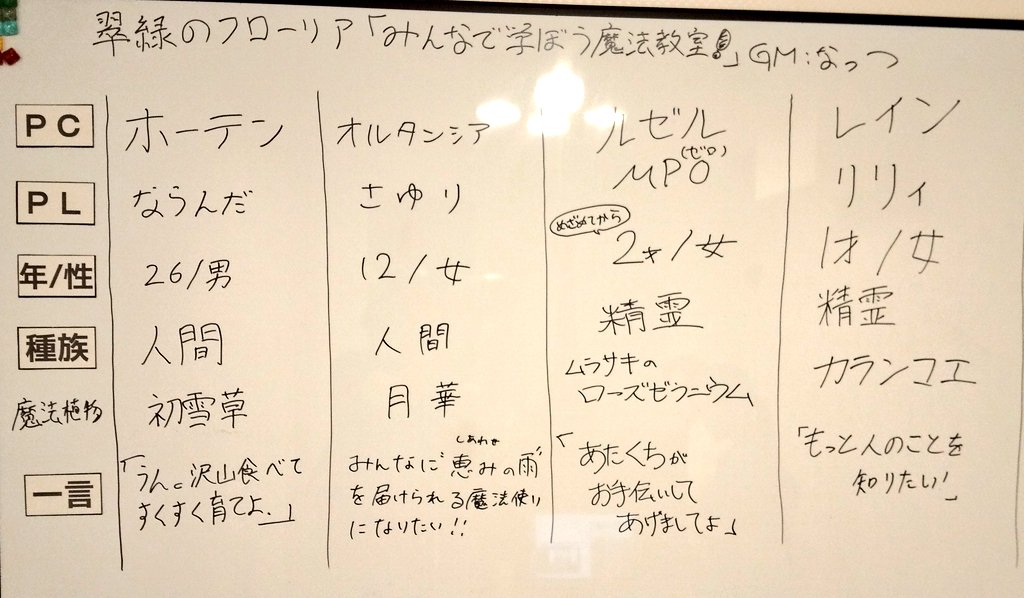 翠緑のフローリア「みんなで学ぼう魔法教室!」GM:なっつ
PC ホーテン オルタンシア ルゼル レイン
PL ならんだ さゆり MPO(ゼロ) リリィ
年/性 26/男 12/女 めざめてから 2才/女 1才/女
種族 人間 人間 精霊 精霊
魔法植物 初雪草 月華 ムラサキの カランコエ
ローズゼラニウム
一言 「うん。沢山食べて
すくすく育てよ.」
みんなに"恵みの雨"
しあわせ
を届けられる魔法使い
になりたい!!
「あたくちが
お手伝いして
あげましてよ」
「もっと人のことを
知りたい!」